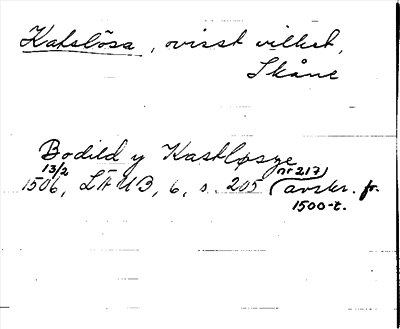 Katslösa, ovisst vilket,
Skåne
Bodild y Kastløsye
13/2 1506, LÄUB, 6, s. 205 (nr 217)
(avskr. fr.
1500-t.